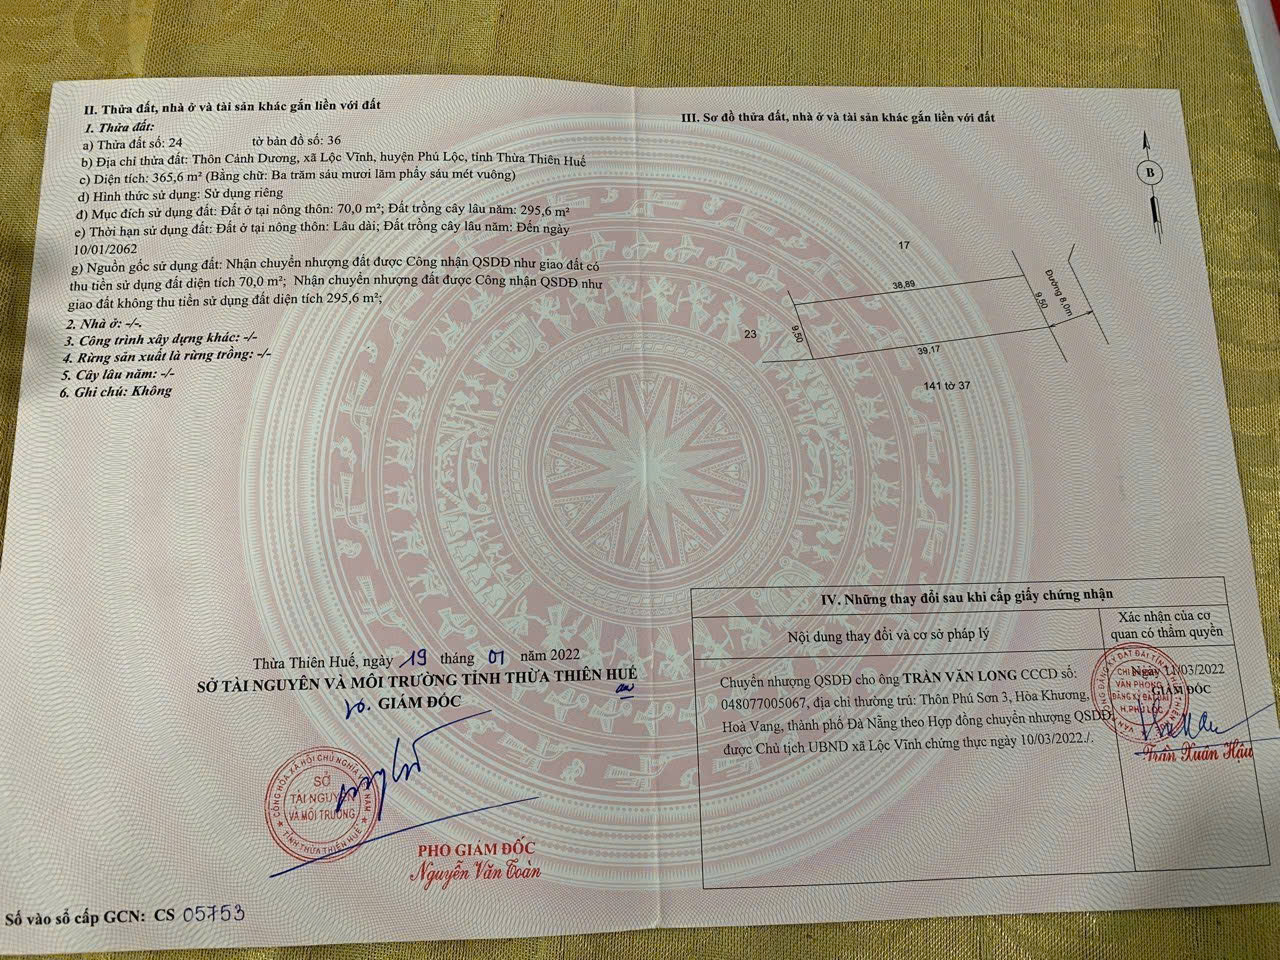 II. Thửa đất, nhà ở và tài sản khác gắn liền với đất
1. Thửa đất:
a) Thửa đất số: 24 tờ bản đồ số: 36
b) Địa chỉ thửa đất: Thôn Cảnh Dương, xã Lộc Vĩnh, huyện Phú Lộc, tỉnh Thừa Thiên Huế
c) Diện tích: 365,6 m² (Bằng chữ: Ba trăm sáu mươi lăm phẩy sáu mét vuông)
d) Hình thức sử dụng: Sử dụng riêng
đ) Mục đích sử dụng đất: Đất ở tại nông thôn: 70,0 m²; Đất trồng cây lâu năm: 295,6 m²
e) Thời hạn sử dụng đất: Đất ở tại nông thôn: Lâu dài; Đất trồng cây lâu năm: Đến ngày
10/01/2062
g) Nguồn gốc sử dụng đất: Nhận chuyển nhượng đất được Công nhận QSDĐ như giao đất có
thu tiền sử dụng đất diện tích 70,0 m²; Nhận chuyển nhượng đất được Công nhận QSDĐ như
giao đất không thu tiền sử dụng đất diện tích 295,6 m²;
2. Nhà ở: -/-.
3. Công trình xây dựng khác: -/-
4. Rừng sản xuất là rừng trồng: -/-
5. Cây lâu năm: -/-
6. Ghi chú: Không
Thừa Thiên Huế, ngày 19 tháng 01 năm 2022
SỞ TÀI NGUYÊN VÀ MÔI TRƯỜNG TỈNH THỪA THIÊN HUẾ
GIÁM ĐỐC
CỘNG HÒA XÃ HỘI CHỦ NGHĨA VIỆT NAM
SỞ
TÀI NGUYÊN
VÀ MÔI TRƯỜNG
TỈNH THỪA THIÊN HUẾ
PHÓ GIÁM ĐỐC
Nguyễn Văn Toàn
Số vào sổ cấp GCN: CS 05753
III. Sơ đồ thửa đất, nhà ở và tài sản khác gắn liền với đất
B
17
38,89
9,50
Đường 8,0m
23
9,50
39,17
141 tờ 37
IV. Những thay đổi sau khi cấp giấy chứng nhận
Nội dung thay đổi và cơ sở pháp lý
Xác nhận của cơ
quan có thẩm quyền
Chuyển nhượng QSDĐ cho ông TRẦN VĂN LONG CCCD số:
048077005067, địa chỉ thường trú: Thôn Phú Sơn 3, Hòa Khương,
Hoà Vang, thành phố Đà Nẵng theo Hợp đồng chuyển nhượng QSDĐ
được Chủ tịch UBND xã Lộc Vĩnh chứng thực ngày 10/03/2022./.
Ngày 11/03/2022
GIÁM ĐỐC
CHI NHÁNH
VĂN PHÒNG
ĐĂNG KÝ ĐẤT ĐAI
H. PHÚ LỘC
Trần Xuân Hậu